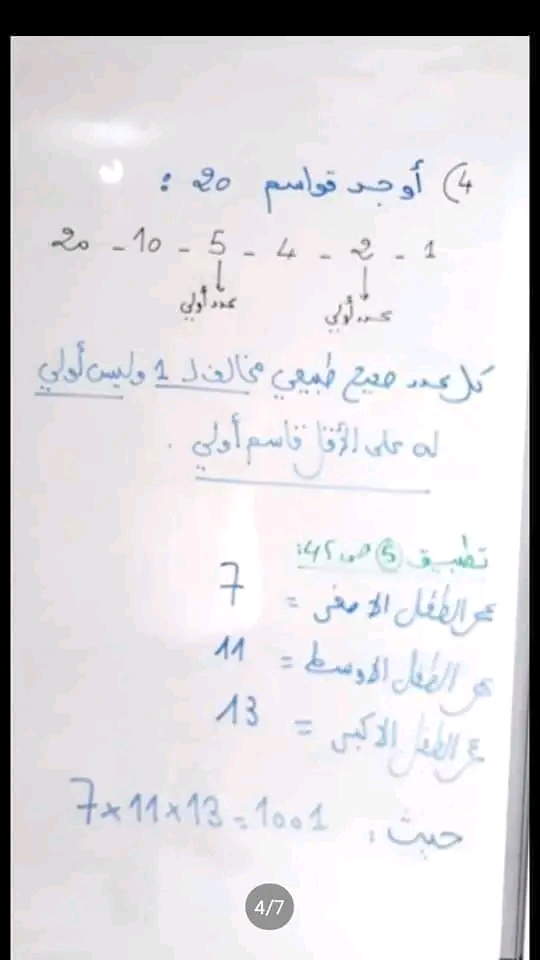 4) أوجد قواسم 20 :
1 - 2 - 4 - 5 - 10 - 20
عدد أولي عدد أولي
كل عدد صحيح طبيعي مخالف لـ 1 وليس أولي
له على الأقل قاسم أولي .
تطبيق 5 ص 42:
عمر الطفل الاصغر = 7
عمر الطفل الاوسط = 11
عمر الطفل الاكبر = 13
حيث : 7×11×13=1001
4/7